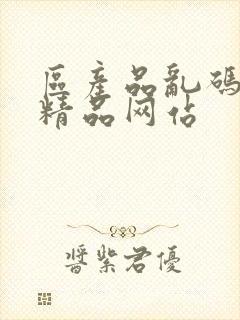 區產品亂碼
精品网站
醬紫君優